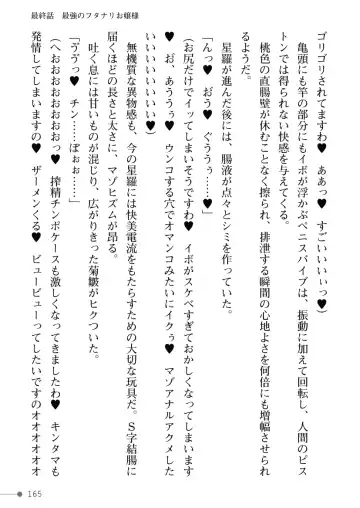 最終話　最強のフタナリお嬢様
ゴリゴリされてますわ♥　ああっ♥　すごいいいぃっ♥）
　亀頭にも竿の部分にもイボが浮かぶペニスバイブは、振動に加えて回転し、人間のピス
トンでは得られない快感を与えてくる。
　桃色の直腸壁が休むことなく擦られ、排泄する瞬間の心地よさを何倍にも増幅させられ
るようだ。
「んっ♥　おう♥　ぐううぅ……♥」
　星羅が進んだ後には、腸液が点々とシミを作っていた。
（お尻だけでイッてしまいそうですわ♥　イボがスケベすぎておかしくなってしまいます
♥　お、あううぅ♥　ウンコする穴でオマンコみたいにイクぅ♥　マゾアナルアクメした
いいいいいいいぃっ♥）
　無機質な異物感も、今の星羅には快美電流をもたらすための大切な玩具だ。Ｓ字結腸に
届くほどの長さと太さに、マゾヒズムが昂る。
　吐く息には甘いものが混じり、広がりきった菊皺がヒクついた。
「ヴヴっ♥　チン……ぽぉぉ……♥」
（へおおおおおおおっ♥　搾精チンポケースも激しくなってきましたわ♥　キンタマも
発情してしまいますの♥　ザーメンくる♥　ビュービューってしたいですのオオオオオオ
165